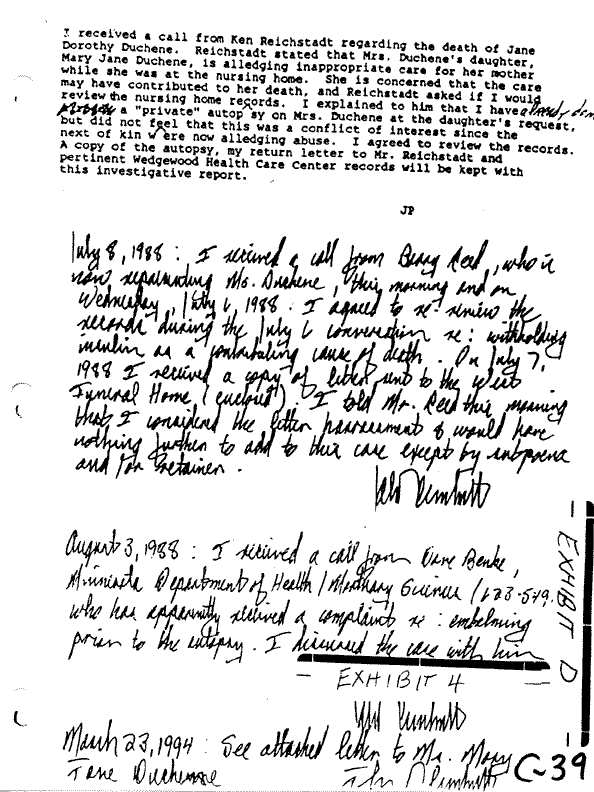 I received a call from Ken Reichstadt regarding the death of Jane
Dorothy Duchene. Reichstadt stated that Mrs. Duchene's daughter,
Mary Jane Duchene, is alledging inappropriate care for her mother
while she was at the nursing home. She is concerned that the care
may have contributed to her death, and Reichstadt asked if I would
review the nursing home records. I explained to him that I have already done
a "private" autopsy on Mrs. Duchene at the daughter's request,
but did not feel that this was a conflict of interest since the
next of kin were now alledging abuse. I agreed to review the records.
A copy of the autopsy, my return letter to Mr. Reichstadt and
pertinent Wedgewood Health Care Center records will be kept with
this investigative report.
JP
July 8, 1988 : I received a call from Barry Reed, who is
now representing Ms. Duchene, this morning and on
Wednesday, July 6, 1988. I agreed to re-review the
records during the July 6 conversation re: withholding
insulin as a contributing cause of death. On July 7,
1988 I received a copy of letter sent to the West
Funeral Home, (enclosed). I told Mr. Reed this morning
that I considered the letter harassment & would have
nothing further to add to this case except by subpoena
and/or retainer.
August 3, 1988 : I received a call from Dave Benke,
Minnesota Department of Health / Mortuary Science / 623-549
who has apparently received a complaint re: embalming
prior to the autopsy. I discussed the case with him
EXHIBIT 4
EXHIBIT D
March 23, 1994 : See attached letter to Ms. Mary
Jane Duchenne
C-39